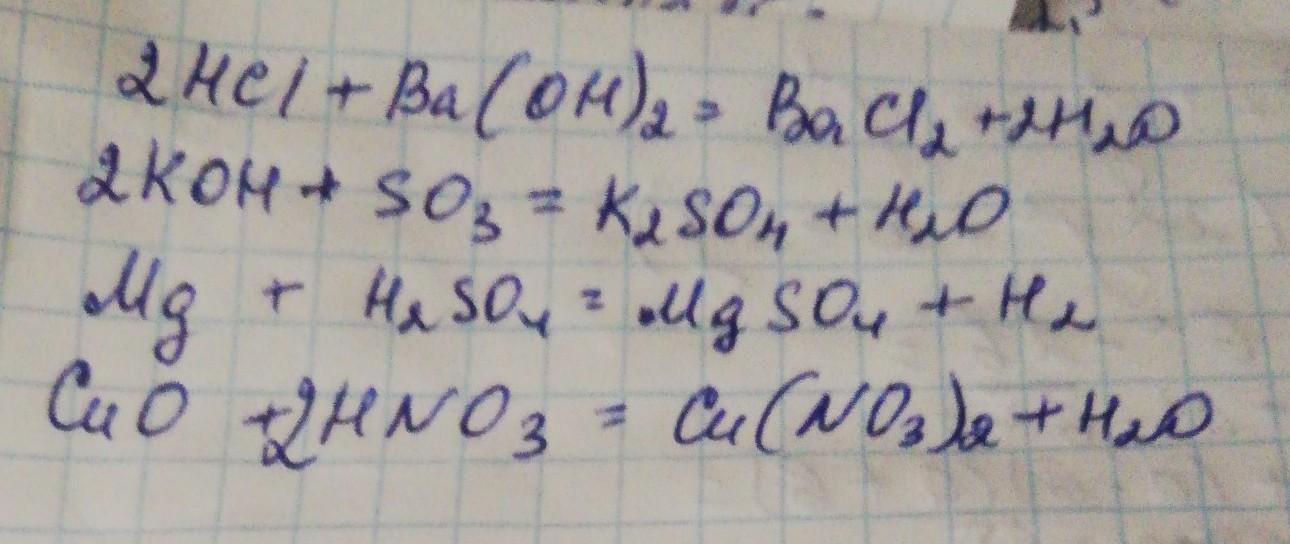 2HCl + Ba(OH)₂ = BaCl₂ + 2H₂O
2KOH + SO₃ = K₂SO₄ + H₂O
Mg + H₂SO₄ = MgSO₄ + H₂
CuO + 2HNO₃ = Cu(NO₃)₂ + H₂O